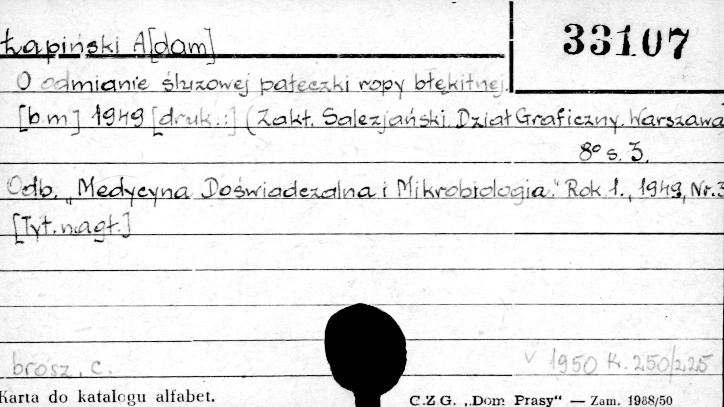 Łapiński A[dam]
33107
O odmianie śluzowej pałeczki ropy błękitnej.
[b.m] 1949 [druk.:] (Zakł. Salezjański. Dział Graficzny. Warszawa
8° s. 3.
Odb. „Medycyna Doświadczalna i Mikrobiologia." Rok 1., 1949, Nr. 3
[Tyt. nagł.]
brosz. c.
v 1950 K. 250/225
Karta do katalogu alfabet.
C.Z G. „Dom Prasy" — Zam. 1988/50